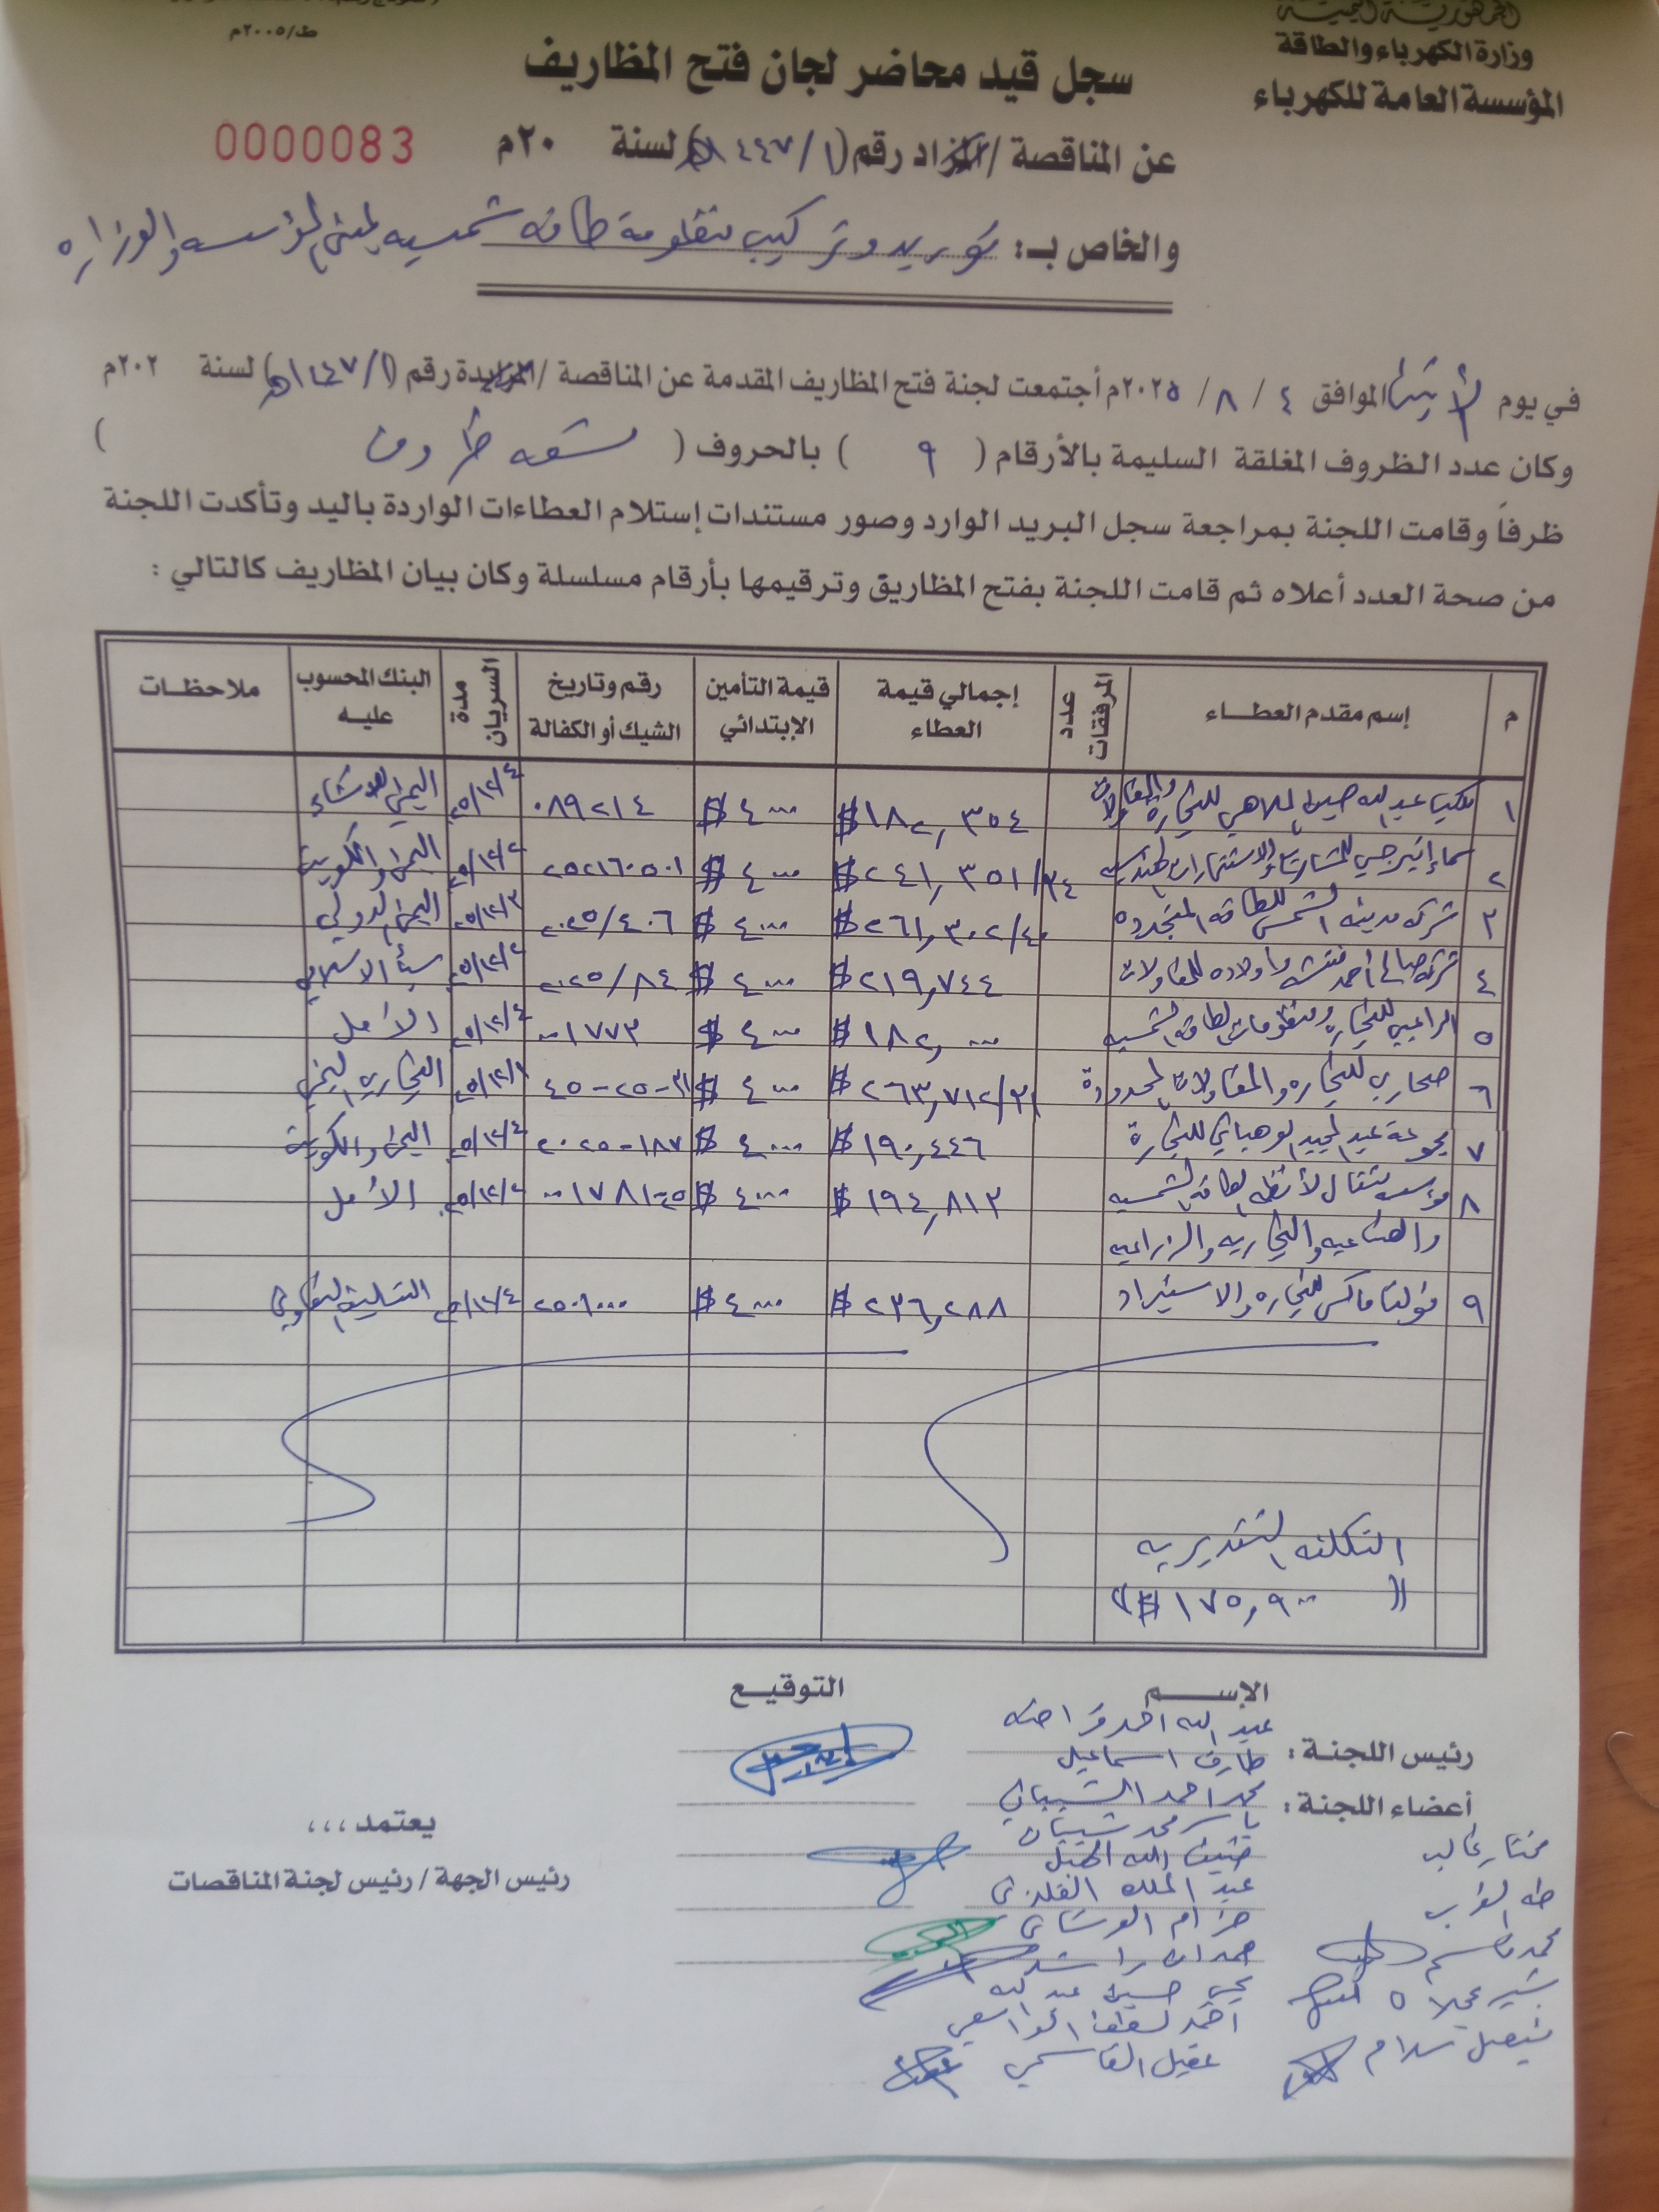 الجمهورية اليمنية
وزارة الكهرباء والطاقة
المؤسسة العامة للكهرباء
ط/٢٠٠٥م
سجل قيد محاضر لجان فتح المظاريف
عن المناقصة / المزاد رقم (١ / ١٤٤٧هـ) لسنة ٢٠م
0000083
والخاص بـ: توريد وتركيب منظومة طاقه شمسيه لمبنى المؤسسه والوزاره
في يوم الاثنين الموافق ٤ / ٨ / ٢٠٢٥م أجتمعت لجنة فتح المظاريف المقدمة عن المناقصة / المزايدة رقم (١ / ١٤٤٧هـ) لسنة ٢٠٢م
وكان عدد الظروف المغلقة السليمة بالأرقام ( ٩ ) بالحروف ( تسعه ظروف )
ظرفاً وقامت اللجنة بمراجعة سجل البريد الوارد وصور مستندات إستلام العطاءات الواردة باليد وتأكدت اللجنة
من صحة العدد أعلاه ثم قامت اللجنة بفتح المظاريق وترقيمها بأرقام مسلسلة وكان بيان المظاريف كالتالي :
م إسم مقدم العطـــاء عدد المرفقات إجمالي قيمة العطاء قيمة التأمين الإبتدائي رقم وتاريخ الشيك أو الكفالة مدة السريان البنك المحسوب عليـه ملاحظـات
١ مكتب عبدالله حسين الملاهي للتجارة والمقاولات ١٨٢,٣٥٤$ ٤٠٠٠$ ٠٨٩٢١٤ ٢٥/١٢/٤ اليمن للانشاء
٢ سماء إنيرجي للمشاريع والاستشارات الهندسيه ٢٤١,٣٥١/٣٤$ ٤٠٠٠$ ٢٥٢١٦٠٥٠١ ٢٥/١٢/٢ اليمن والكويت
٣ شركه مدينه الشمس للطاقه المتجدده ٢٦١,٣٠٢/٤٠$ ٤٠٠٠$ ٢٠٢٥/٤٠٦ ٢٥/١٢/٣ اليمن الدولي
٤ شركه صالح أحمد فتش واولاده للمقاولات ٢١٩,٧٤٤$ ٤٠٠٠$ ٢٠٢٥/٨٤ ٢٥/١٢/٢ سبأ الاسلامي
٥ الراعبي للتجاره ومنظومات الطاقه الشمسيه ١٨٢,٠٠٠$ ٤٠٠٠$ ٠٠١٧٧٣ ٢٥/١٢/٤ الأمل
٦ صحاري للتجاره والمقاولات المحدودة ٢٦٣,٧١٢/٣١$ ٤٠٠٠$ ٤٥-٢٥-٣١ ٢٥/١٢/١ التجاري اليمني
٧ مجموعة عبدالمجيد الوهباني للتجارة ١٩٠,٤٤٦$ ٤٠٠٠$ ٢٠٢٥-١٨٧ ٢٥/١٢/٤ اليمن والكويت
٨ مؤسسه لأنظمه الطاقه الشمسيه ١٩٤,٨١٣$ ٤٠٠٠$ ٢٥/١٢/٢ الأمل
والصناعيه والتجاريه والزراعيه
٩ فولتا ماكس للتجاره والاستيراد ٢٣٦,٢٨٨$ ٤٠٠٠$ ٢٥٠٦٠٠٠ ٢٥/١٢/٤ التسليف التعاوني
التكلفه التقديريه
(( ١٧٥,٩٠٠$ ))
الإســـم التوقيـــع
رئيس اللجنـة : عبدالله احمد
طارق اسماعيل
أعضاء اللجنة : محمد احمد الشيباني
ياسر محمد شيبان
ضيف الله
عبد الملك
حزام الوشاني
حمدان راشد
يحيى حسين عبدالله
احمد لطف الواسعي
عقيل القاسمي
مختار غالب
محمد قاسم
بشير عجلان
فيصل سلام
يعتمد ،،،
رئيس الجهة / رئيس لجنة المناقصات